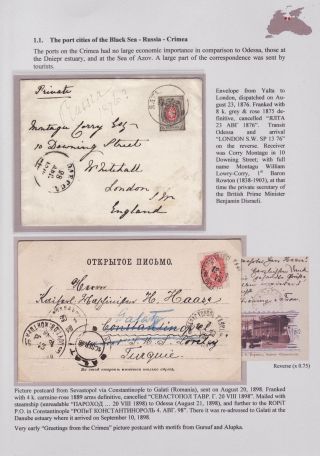 1.1. The port cities of the Black Sea - Russia - Crimea
The ports on the Crimea had no large economic importance in comparison to Odessa, those at
the Dniepr estuary, and at the Sea of Azov. A large part of the correspondence was sent by
tourists.
Envelope from Yalta to
London, dispatched on Au-
gust 23, 1876. Franked with
8 k. grey & rose 1875 defi-
nitive, cancelled "ЯЛТА
23 АВГ 1876". Transit
Odessa and arrival
"LONDON S.W. SP 13 76"
on the reverse. Receiver
was Corry Montagu in 10
Downing Street; with full
name Montagu William
Lowry-Corry, 1st Baron
Rowton (1838-1903), at that
time the private secretary of
the British Prime Minister
Benjamin Disraeli.
Private
Montagu Corry Esq
10 Downing Street
Whitehall
London
S.W.
England
ОТКРЫТОЕ ПИСЬМО.
Herrn
H. Haars
Galatz
Constantinopel
Turquie
Reverse (x 0.75)
Picture postcard from Sevastopol via Constantinople to Galati (Romania), sent on August 20, 1898. Franked
with 4 k. carmine-rose 1889 arms definitive, cancelled "СЕВАСТОПОЛ ТАВР. Г. 20 VIII 1898". Mailed with
steamship (unreadable "ПАРОХОД ... 20 VIII 1898") to Odessa (August 21, 1898), and further to the ROPiT
P.O. in Constantinople "РОПиТ КОНСТАНТИНОПОЛЬ 4. АВГ. 98". There it was re-adressed to Galati at the
Danube estuary where it arrived on September 10, 1898.
Very early "Greetings from the Crimea" picture postcard with motifs from Gursuf and Alupka.